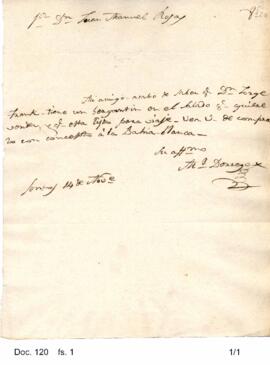 Sr. Dn. Juan Manuel Rosas
Mi amigo: acabo de saber q. Dn. Jorge
Frank tiene un bergantin en el Salado q. quiere
vender y q. esta listo para viaje. Vea V. de comprar
lo con concepto à la Bahia blanca
Su affmo
Ml. Dorrego
14 de Nove
Doc. 120 fs. 1
1/1